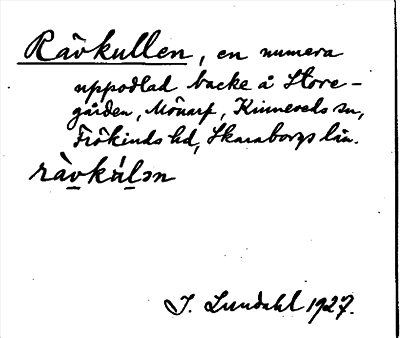 Rävkullen, en numera
uppodlad backe å Store-
gården, Mönarp, Kinneveds sn,
Frökinds hd, Skaraborgs län.
ràvkúlən
J. Lundahl 1927.